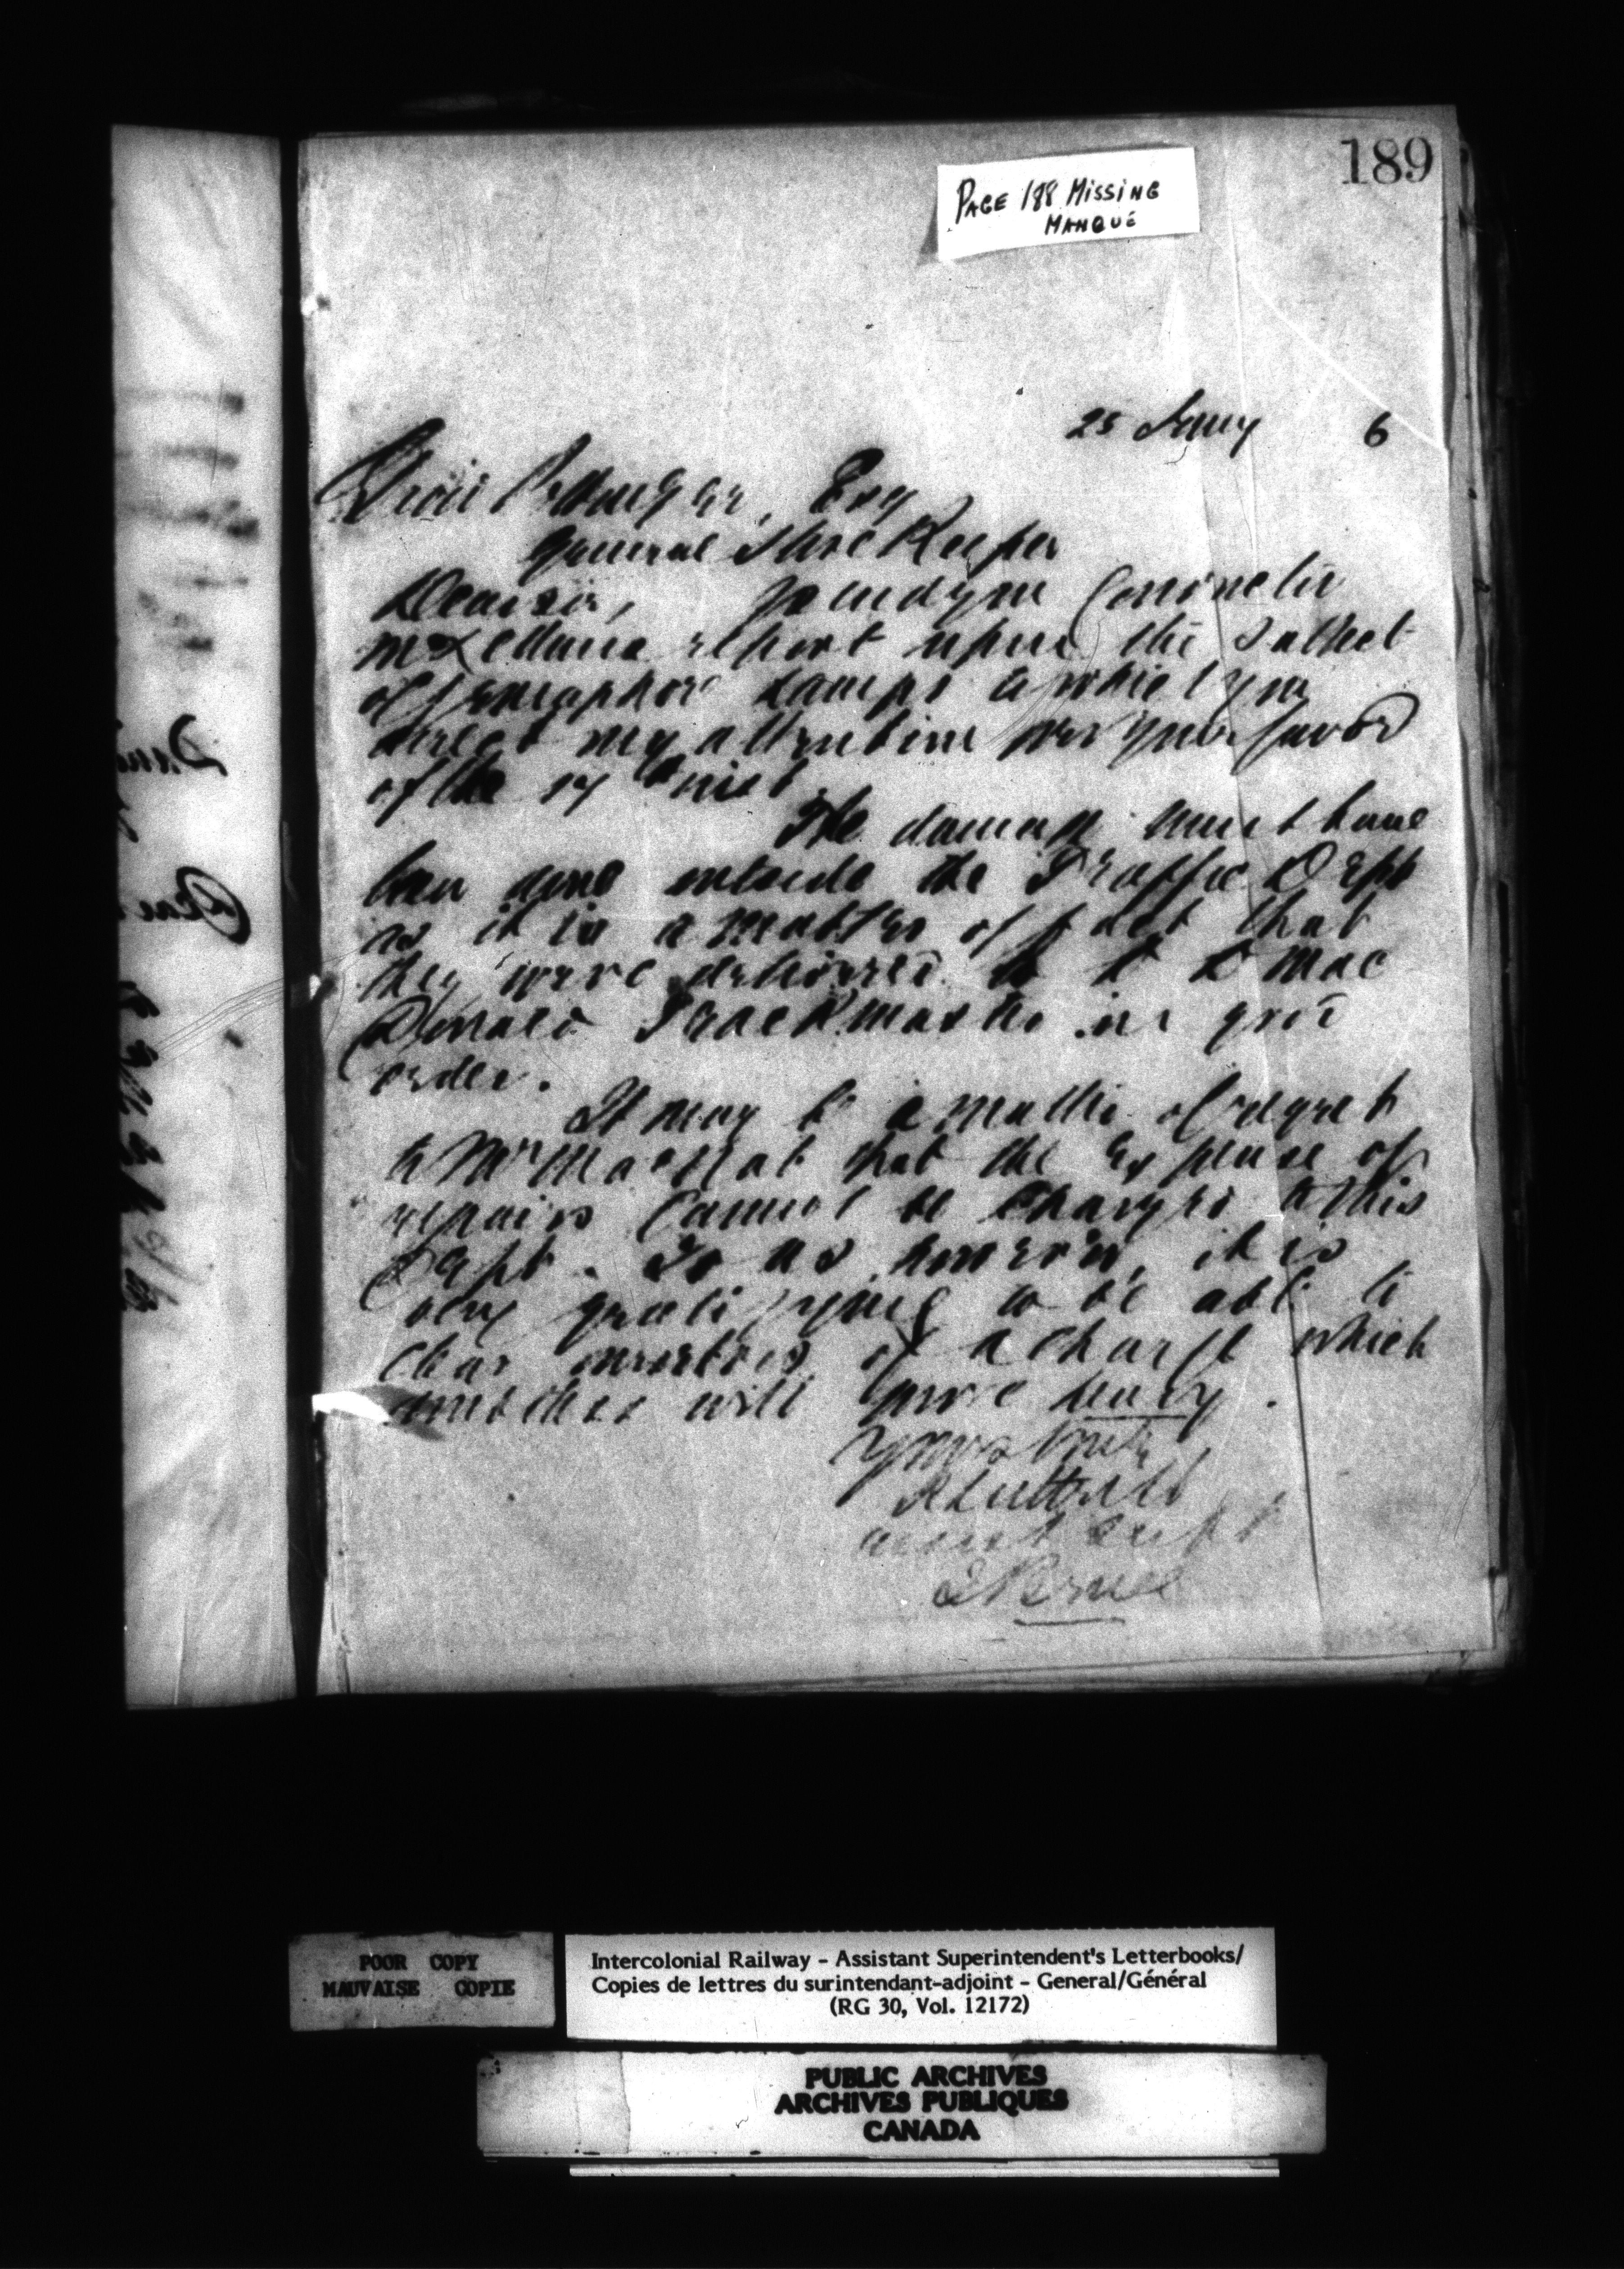 189
PAGE 188 MISSING
MANQUÉ
25 Jany 6
Esq
General Store Keeper
Dear Sir, I send you Conductor
McLellans report upon the subject
of Semaphore Lamps to which you
direct my attention per your favor
of the 17th inst
The damage must have
been done outside the Traffic Dept
as it is a matter of fact that
they were delivered to L D Mac
Donald Trackmaster in good
order.
It may be a matter of regret
to Mr MacNab that the expense of
repairs cannot be charged to this
Dept. To us however, it is
very gratifying to be able to
clear ourselves of a charge which
will prove heavy.
Yours truly
A Luttrell
Assist Supt
POOR COPY
MAUVAISE COPIE
Intercolonial Railway - Assistant Superintendent's Letterbooks/
Copies de lettres du surintendant-adjoint - General/Général
(RG 30, Vol. 12172)
PUBLIC ARCHIVES
ARCHIVES PUBLIQUES
CANADA